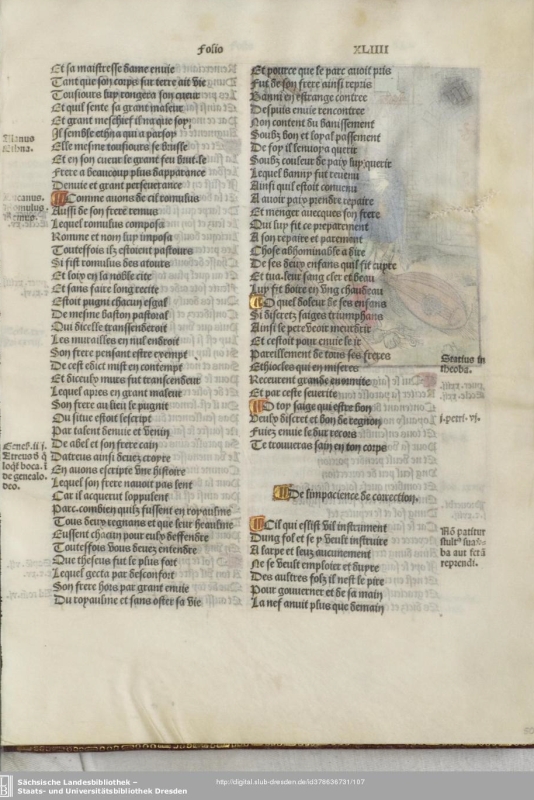 Folio XLIIII
Et sa maistresse dame enuie
Tant que son corps sur terre ait vie
Tousiours luy rongera son cueur
Et quil sente sa grant maleur
Et grant meschief il na que soy
Il semble ethna qui a par soy
Elle mesme tousiours se brusle
Et en son cueur le grant feu brusle
Frere a beaucoup plus dapparance
Denuie et grant perseuerance
Comme auons de cil romulus
Aussi de son frere remus
Lequel romulus composa
Romme et nom luy imposa
Touteffois ilz estoient pastours
Si fist romulus des atours
Et loix en la noble cite
Et sans faire long recite
Estoit pugni chacun esgal
De mesme baston pastoral
Qui dicelle transsenderoit
Les murailles en nul endroit
Son frere pensant estre exempt
De cest edict mist en contempt
Et diceulx murs fut transcendent
Lequel apres en grant maleur
Son frere au lieu le pugnit
Ou situe estoit lescript
Par talent denuie et venin
De abel et son frere cain
Datreus ainsi deuez croyre
En auons escripte vne histoire
Lequel son frere nauoit pas sent
Car il acquerut loppulent
Parc. combien quilz fussent en royaulme
Tous deux regnans et que leur heaulme
Eussent chacun pour eulx deffendre
Touteffois vous deuez entendre
Que theseus fut le plus fort
Lequel gecta par desconfort
Son frere hors par grant enuie
Du royaulme et sans oster sa vie
Tianus
Ethna.
Romulus
Remus.
Genes. iiii.
Atreus d q̄
loq̄t boca. i
de genealo.
deo.
Et pource que le parc auoit pris
Fut de son frere ainsi repris
Banni en estrange contree
Despuis enuie rencontree
Non content du banissement
Soubz bon et loyal passement
De foy il lenuoya querir
Soubz couleur de paix luy querir
Lequel banny fut reuenu
Ainsi quil estoit conuenu
A auoir paix prendre repaire
Et menger auecques son frere
Qui luy fit ce preparement
A son repaire et parement
Chose abhominable a dire
De ses deux enfans quil fit cuyre
Et tua. leur sang cler et beau
Luy fit boire en vng chaudeau
O quel doleur de ses enfans
Si discretz saiges triumphans
Ainsi le pere veoir meurdrir
Et cestoit pour enuie le ir
Pareillement de tous ses freres
Ethiocles qui en miseres
Receurent grande enormite
Et par ceste seuerite
O toy saige qui estre bon
Veulx discret et bon de regnon
Fuiez enuie le dur recors
Te trouueras sain en ton corps
De limpacience de correction.
Cil qui eslist vil instrument
Dung fol et se y veult instruire
A larpe et leuz aucunement
Ne se veult emploier et duyre
Des aultres folz il nest le pire
Pour gouuerner et de sa main
La nef anuit plus que demain
Statius in
theoba.
i. petri. vi.
Nō patitur
ba aut ferā
reprendi.
Sächsische Landesbibliothek –
Staats- und Universitätsbibliothek Dresden
http://digital.slub-dresden.de/id378636731/107